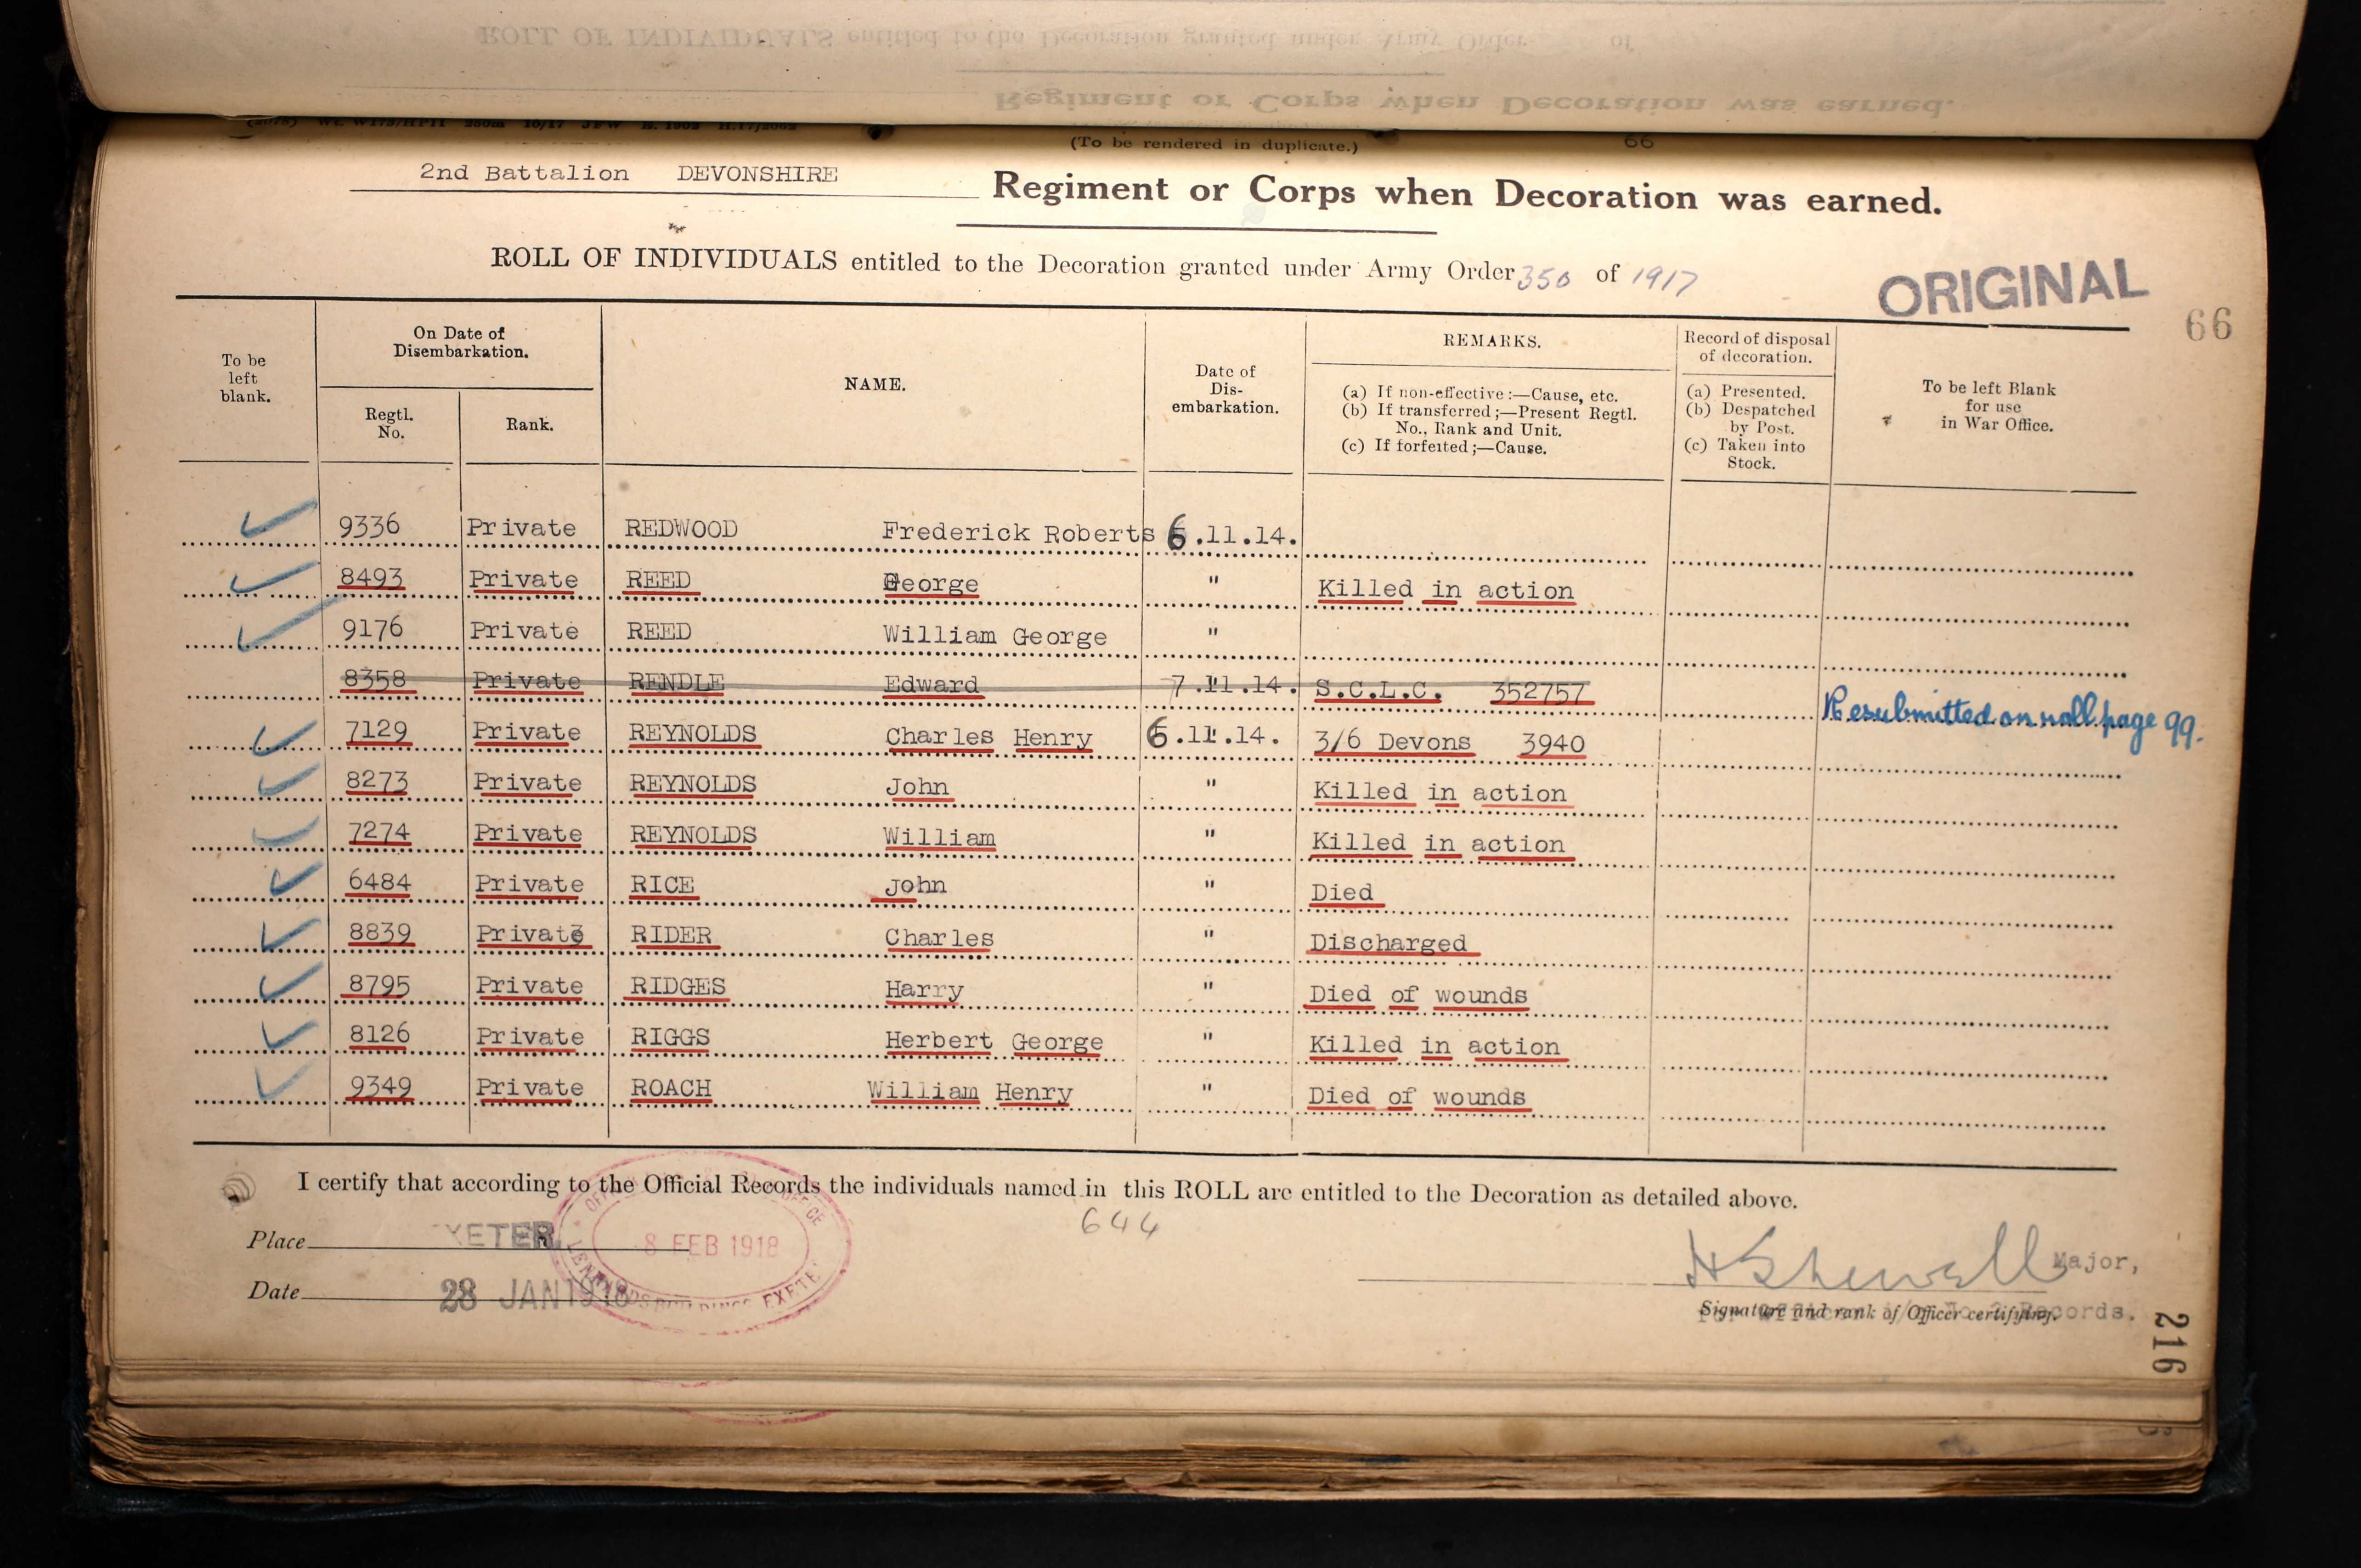 (To be rendered in duplicate.) 66
2nd Battalion DEVONSHIRE Regiment or Corps when Decoration was earned.
ROLL OF INDIVIDUALS entitled to the Decoration granted under Army Order 350 of 1917
ORIGINAL
66
To be left blank.
On Date of Disembarkation.
Regtl. No.
Rank.
NAME.
Date of Dis-embarkation.
REMARKS.
(a) If non-effective:—Cause, etc.
(b) If transferred;—Present Regtl. No., Rank and Unit.
(c) If forfeited;—Cause.
Record of disposal of decoration.
(a) Presented.
(b) Despatched by Post.
(c) Taken into Stock.
To be left Blank for use in War Office.
9336 Private REDWOOD Frederick Roberts 6.11.14.
8493 Private REED George " Killed in action
9176 Private REED William George "
8358 Private RENDLE Edward 7.11.14. S.C.L.C. 352757 Resubmitted on roll page 99.
7129 Private REYNOLDS Charles Henry 6.11.14. 3/6 Devons 3940
8273 Private REYNOLDS John " Killed in action
7274 Private REYNOLDS William " Killed in action
6484 Private RICE John " Died
8839 Private RIDER Charles " Discharged
8795 Private RIDGES Harry " Died of wounds
8126 Private RIGGS Herbert George " Killed in action
9349 Private ROACH William Henry " Died of wounds
I certify that according to the Official Records the individuals named in this ROLL are entitled to the Decoration as detailed above.
644
Place XETER
8 FEB 1918
Date 28 JAN 1918
H Shewell Major,
Signature and rank of Officer certifying.
Records.
216